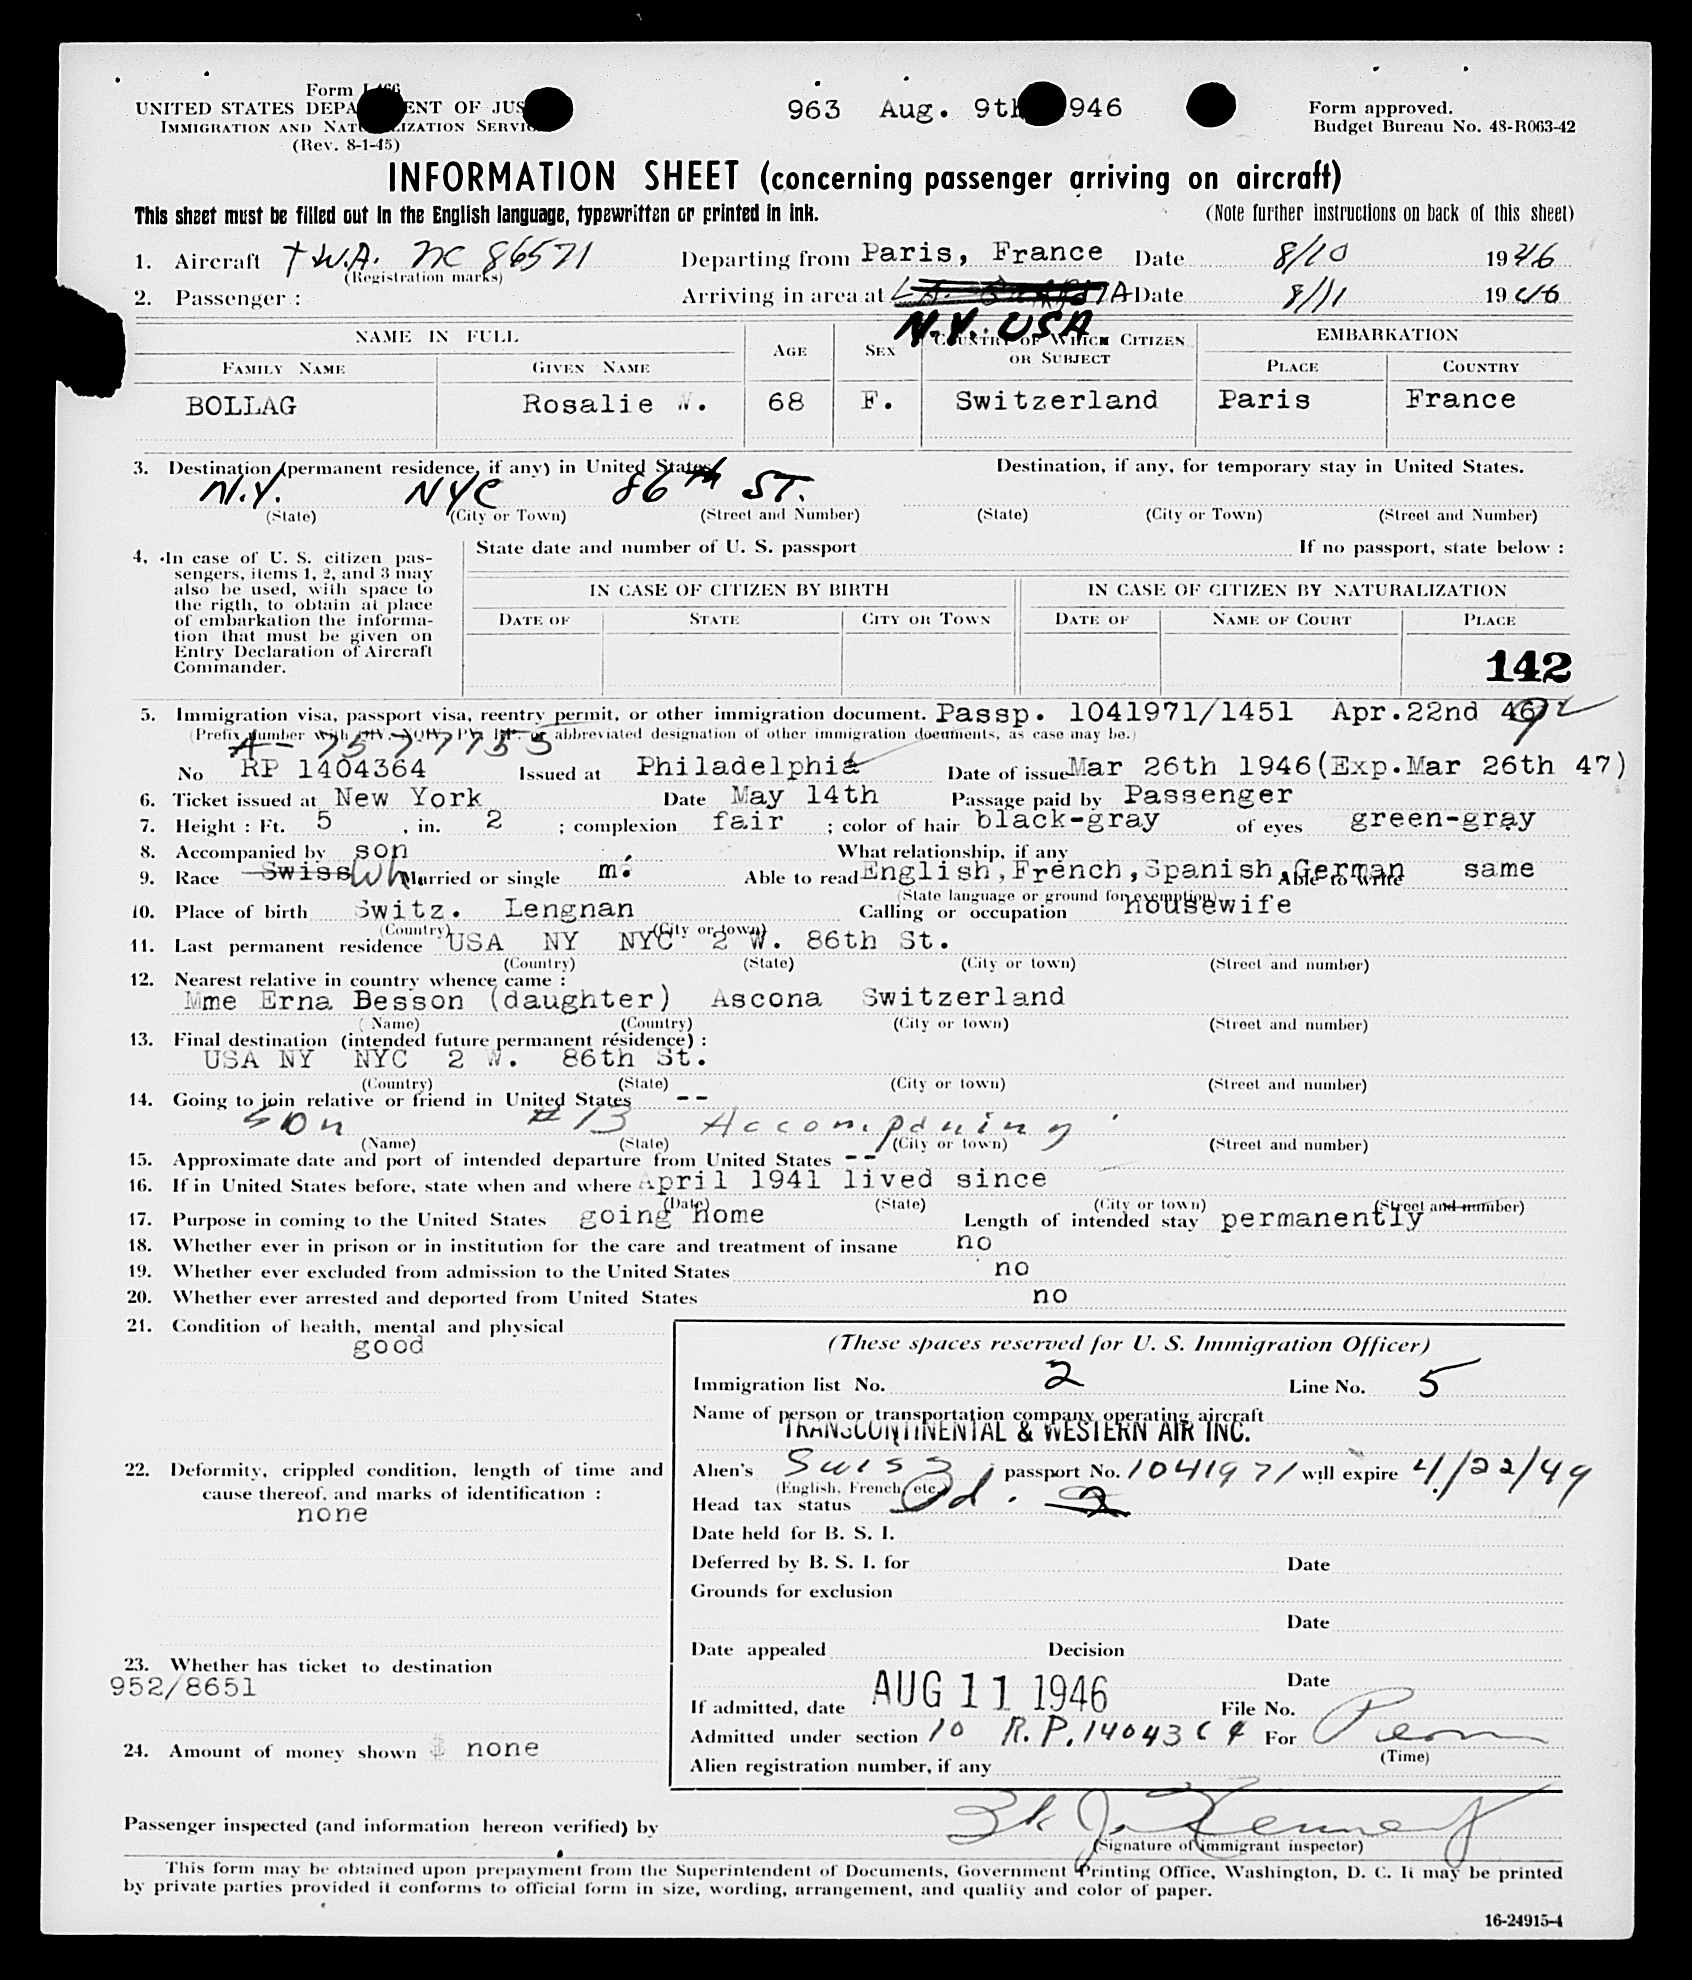 Form I-466
UNITED STATES DEPARTMENT OF JUSTICE
IMMIGRATION AND NATURALIZATION SERVICE
(Rev. 8-1-45)
963 Aug. 9th 1946
Form approved.
Budget Bureau No. 43-R063-42
INFORMATION SHEET (concerning passenger arriving on aircraft)
This sheet must be filled out in the English language, typewritten or printed in ink.
(Note further instructions on back of this sheet)
1. Aircraft T.W.A. NC 86571 Departing from Paris, France Date 8/10 1946
(Registration marks)
2. Passenger : Arriving in area at Date 8/11 1946
N.Y. USA
NAME IN FULL AGE SEX COUNTRY OF WHICH CITIZEN OR SUBJECT EMBARKATION
FAMILY NAME GIVEN NAME PLACE COUNTRY
BOLLAG Rosalie W. 68 F. Switzerland Paris France
3. Destination (permanent residence, if any) in United States. Destination, if any, for temporary stay in United States.
N.Y. NYC 86TH ST.
(State) (City or Town) (Street and Number) (State) (City or Town) (Street and Number)
4. In case of U. S. citizen pas-
sengers, items 1, 2, and 3 may
also be used, with space to
the rigth, to obtain at place
of embarkation the informa-
tion that must be given on
Entry Declaration of Aircraft
Commander.
State date and number of U. S. passport If no passport, state below :
IN CASE OF CITIZEN BY BIRTH IN CASE OF CITIZEN BY NATURALIZATION
DATE OF STATE CITY OR TOWN DATE OF NAME OF COURT PLACE
142
5. Immigration visa, passport visa, reentry permit, or other immigration document. Passp. 1041971/1451 Apr.22nd 46
(Prefix number with QIV, NQIV, PV, RP, or abbreviated designation of other immigration documents, as case may be.)
A-7577755
No RP 1404364 Issued at Philadelphia Date of issue Mar 26th 1946(Exp.Mar 26th 47)
6. Ticket issued at New York Date May 14th Passage paid by Passenger
7. Height : Ft. 5 , in. 2 ; complexion fair ; color of hair black-gray of eyes green-gray
8. Accompanied by son What relationship, if any
9. Race Swiss Wh. Married or single m. Able to read English,French,Spanish,German Able to write same
(State language or ground for exemption)
10. Place of birth Switz. Lengnan Calling or occupation housewife
(Country) (City or town)
11. Last permanent residence USA NY NYC 2 W. 86th St.
(Country) (State) (City or town) (Street and number)
12. Nearest relative in country whence came :
Mme Erna Besson (daughter) Ascona Switzerland
(Name) (Country) (City or town) (Street and number)
13. Final destination (intended future permanent résidence) :
USA NY NYC 2 W. 86th St.
(Country) (State) (City or town) (Street and number)
14. Going to join relative or friend in United States --
son #13 Accompanying
(Name) (State) (City or town) (Street and number)
15. Approximate date and port of intended departure from United States --
16. If in United States before, state when and where April 1941 lived since
(Date) (State) (City or town) (Street and number)
17. Purpose in coming to the United States going home Length of intended stay permanently
18. Whether ever in prison or in institution for the care and treatment of insane no
19. Whether ever excluded from admission to the United States no
20. Whether ever arrested and deported from United States no
21. Condition of health, mental and physical
good
22. Deformity, crippled condition, length of time and
cause thereof, and marks of identification :
none
23. Whether has ticket to destination
952/8651
24. Amount of money shown $ none
(These spaces reserved for U. S. Immigration Officer)
Immigration list No. 2 Line No. 5
Name of person or transportation company operating aircraft
TRANSCONTINENTAL & WESTERN AIR INC.
Alien's Swiss passport No. 1041971 will expire 4/22/49
(English, French, etc.)
Head tax status Pd. 2
Date held for B. S. I.
Deferred by B. S. I. for Date
Grounds for exclusion
Date
Date appealed Decision
Date
If admitted, date AUG 11 1946 File No.
Admitted under section 10 R.P.1404364 For Perm
(Time)
Alien registration number, if any
Passenger inspected (and information hereon verified) by
(Signature of immigrant inspector)
This form may be obtained upon prepayment from the Superintendent of Documents, Government Printing Office, Washington, D. C. It may be printed
by private parties provided it conforms to official form in size, wording, arrangement, and quality and color of paper.
16-24915-4